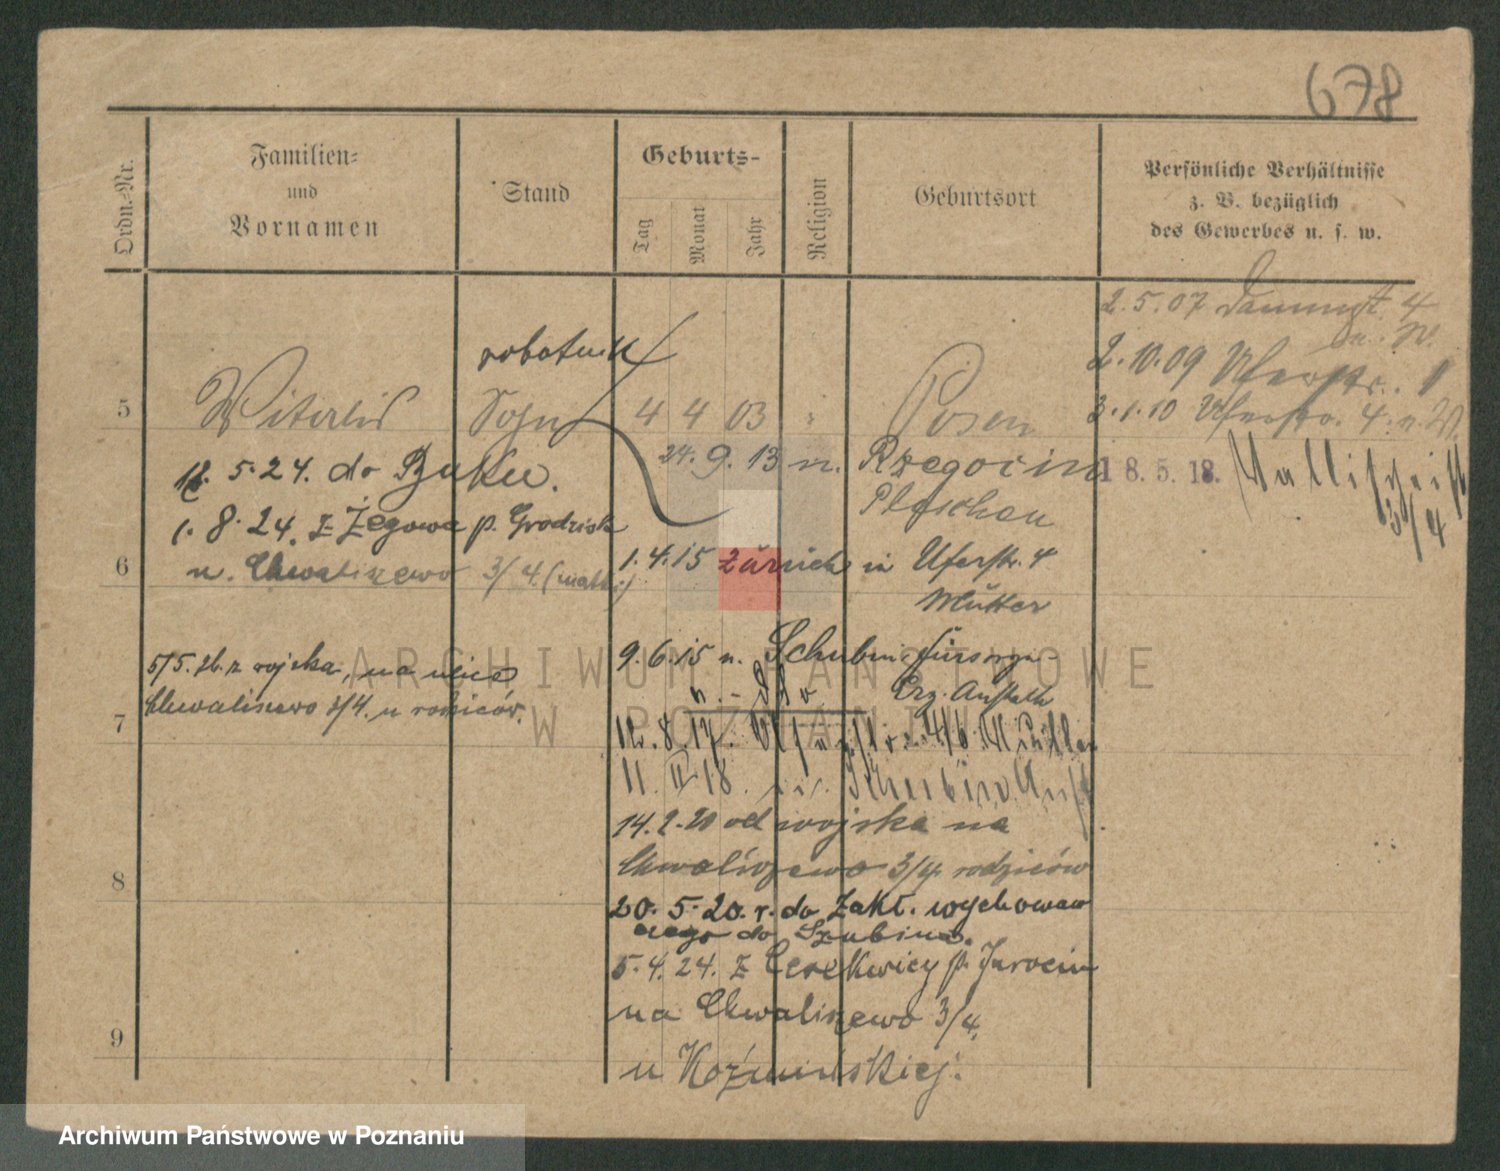 678
Ordn.-Nr.
Familien-
und
Vornamen
Stand
Geburts-
Tag
Monat
Jahr
Religion
Geburtsort
Persönliche Verhältnisse
z. B. bezüglich
des Gewerbes u. s. w.
2.5.07 4
2.10.09 Uferstr. 1
3.1.10 Uferstr. 4.
robotnik
5 Witalis Sohn 4 4 03 Posen
24. 9. 13 n. Rzegocin
Pleschen
18.5.18. Wallischeist
3/4
12. 5. 24. do Buku.
1. 8. 24. z Żegowa p. Grodzisk
n. Chwaliszewo 3/4. (matki)
6
1.4.15 zurück in Uferstr. 4
Mutter
9.6.15 n. Schubin fürsorge
Erz. Anstalt
5/5. 26. z wojska, na ulice
Chwaliszewo 3/4. u rodziców.
7
12. 8. 17. 4/6.
11. II. 18. Schubin Anst
14.2.20 od wojska na
Chwaliszewo 3/4 rodziców
8
20. 5. 20. r. do Zakł. wychowaw
czego do Szubina.
5. 4. 24. z Cerekwicy p. Jarocin
na Chwaliszewo 3/4.
9
u Koźmińskiej.
ARCHIWUM PAŃSTWOWE
W POZNANIU
Archiwum Państwowe w Poznaniu